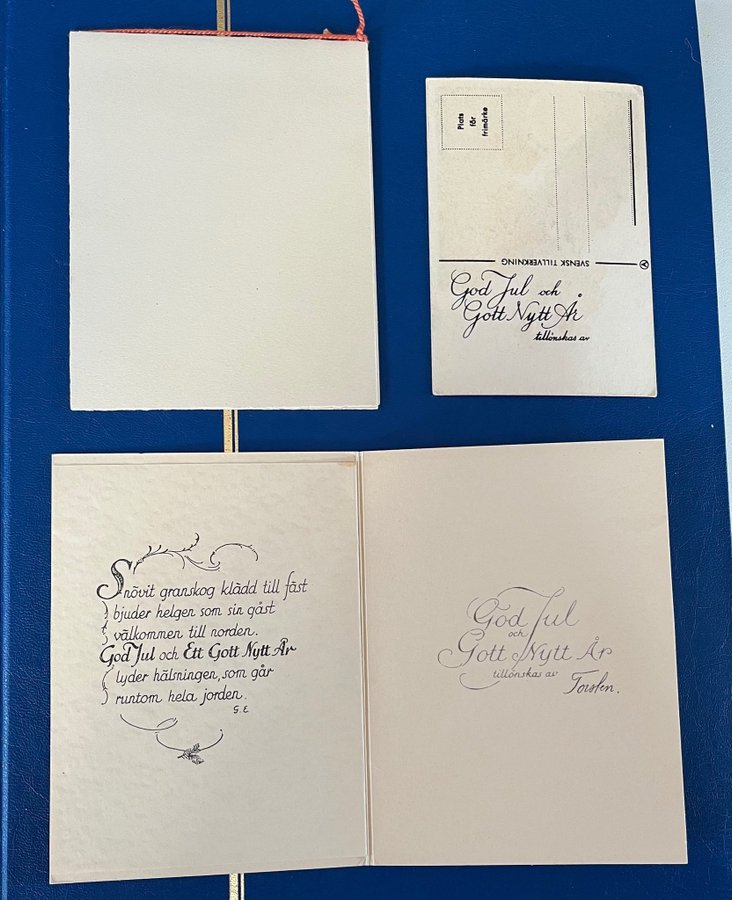 Plats
för
frimärke
SVENSK TILLVERKNING
God Jul och
Gott Nytt År
tillönskas av
Snövit granskog klädd till fäst
bjuder helgen som sin gäst
välkommen till norden.
God Jul och Ett Gott Nytt År
lyder hälsningen, som går
runtom hela jorden.
G. E
God Jul
och
Gott Nytt År
tillönskas av
Torsten.